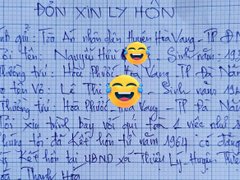 ĐƠN XIN LY HÔN
gửi: Toà Án nhân dân Huyện Hoà Vang - TP. Đ
Tôi tên: Nguyễn Hữu Sinh năm 19
Thường trú: Hoà Phước Hoà Vang TP Đà Nẵ
Vợ: Lê Thị Sinh năm 19
trú: Hoà Phước Hoà Vang, TP Đà Nẵ
Tôi xin trình bày với quý toà 1 việc như
Chúng tôi đã kết hôn từ năm 1964 có đăng
kết hôn tại UBND xã Thiệu Lý, Huyện
Thanh Hoá